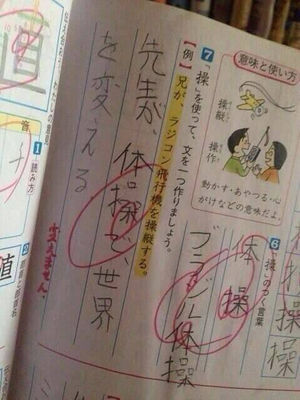 意味と使い方
操縦
そうじゅう
操作
そうさ
動かす・あやつる・心
がけなどの意味だよ。
6 「操」のつく言葉
体操
ブラジル体操
7 「操」を使って、文を一つ作りましょう。
【例】兄が、ラジコン飛行機を操縦する。
先生が、体操で世界
を変える
変えません。
値
1 読み方
音
チ
2
値